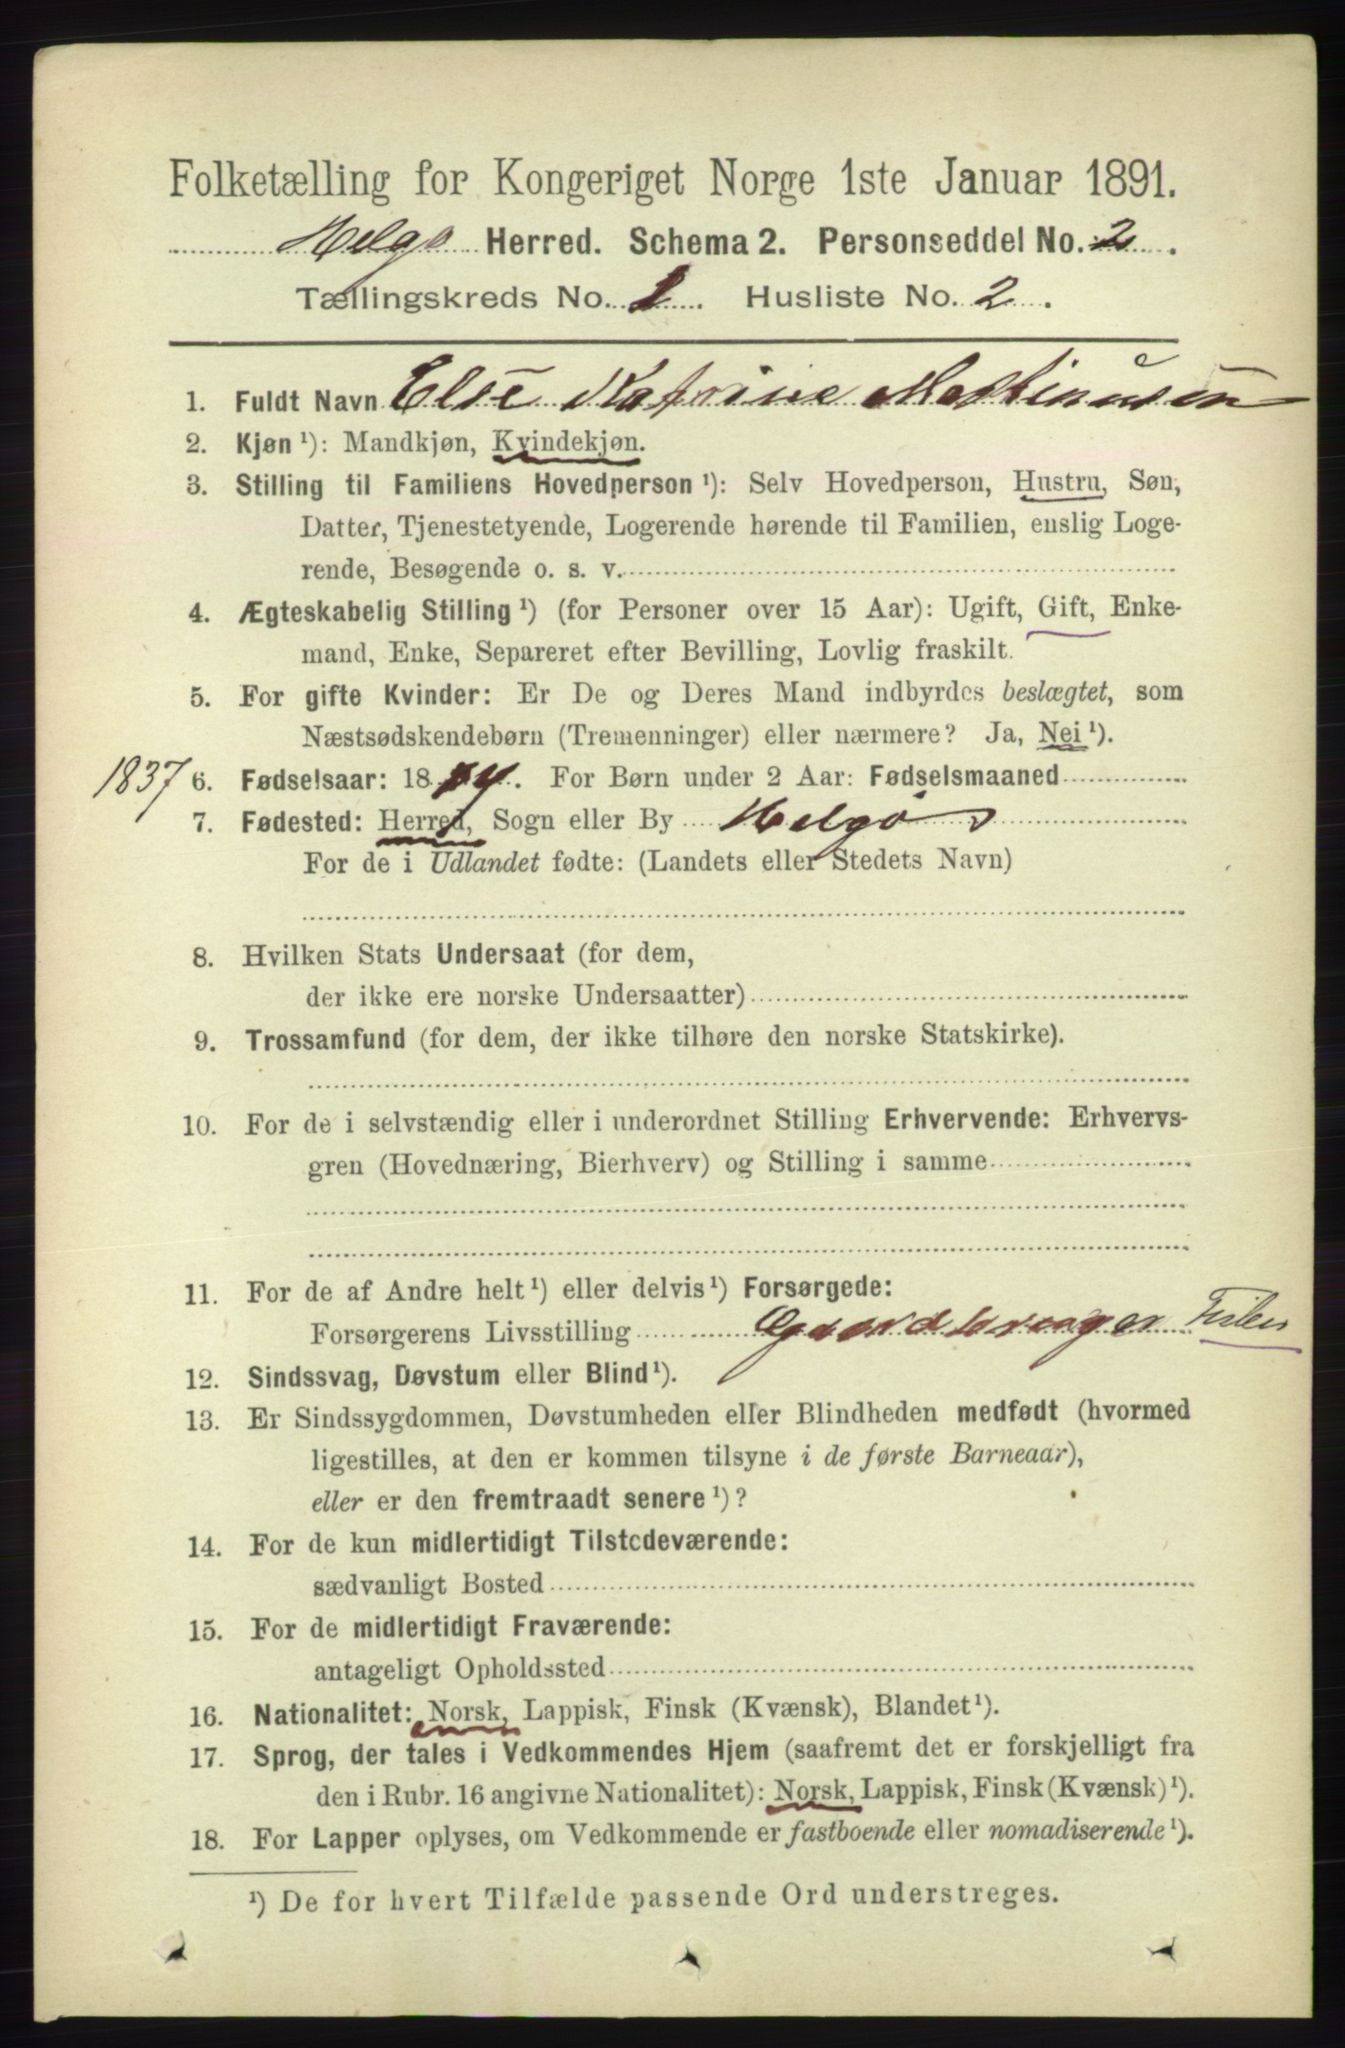 Folketælling for Kongeriget Norge 1ste Januar 1891.
Helgø Herred. Schema 2. Personseddel No. 2.
Tællingskreds No. 1. Husliste No. 2.
1. Fuldt Navn Else Katrine Martinusen
2. Kjøn ¹): Mandkjøn, Kvindekjøn.
3. Stilling til Familiens Hovedperson ¹): Selv Hovedperson, Hustru, Søn,
Datter, Tjenestetyende, Logerende hørende til Familien, enslig Loge-
rende, Besøgende o. s. v.
4. Ægteskabelig Stilling ¹) (for Personer over 15 Aar): Ugift, Gift, Enke-
mand, Enke, Separeret efter Bevilling, Lovlig fraskilt.
5. For gifte Kvinder: Er De og Deres Mand indbyrdes beslægtet, som
Næstsødskendebørn (Tremenninger) eller nærmere? Ja, Nei ¹).
1837 6. Fødselsaar: 18. For Børn under 2 Aar: Fødselsmaaned
7. Fødested: Herred, Sogn eller By Helgø
For de i Udlandet fødte: (Landets eller Stedets Navn)
8. Hvilken Stats Undersaat (for dem,
der ikke ere norske Undersaatter)
9. Trossamfund (for dem, der ikke tilhøre den norske Statskirke).
10. For de i selvstændig eller i underordnet Stilling Erhvervende: Erhvervs-
gren (Hovednæring, Bierhverv) og Stilling i samme
11. For de af Andre helt ¹) eller delvis ¹) Forsørgede:
Forsørgerens Livsstilling Gaardbruger Fisker
12. Sindssvag, Døvstum eller Blind ¹).
13. Er Sindssygdommen, Døvstumheden eller Blindheden medfødt (hvormed
ligestilles, at den er kommen tilsyne i de første Barneaar),
eller er den fremtraadt senere ¹)?
14. For de kun midlertidigt Tilstedeværende:
sædvanligt Bosted
15. For de midlertidigt Fraværende:
antageligt Opholdssted
16. Nationalitet: Norsk, Lappisk, Finsk (Kvænsk), Blandet ¹).
17. Sprog, der tales i Vedkommendes Hjem (saafremt det er forskjelligt fra
den i Rubr. 16 angivne Nationalitet): Norsk, Lappisk, Finsk (Kvænsk) ¹).
18. For Lapper oplyses, om Vedkommende er fastboende eller nomadiserende ¹).
¹) De for hvert Tilfælde passende Ord understreges.